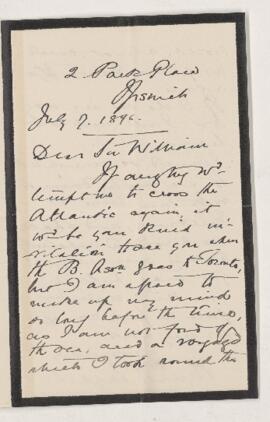 2 Park Place
Ipswich
July 7. 1896.
Dear Sir William
If anything wd
tempt me to cross the
Atlantic again, it
wd be your kind in-
vitation to see you when
the B. Assn goes to Toronto,
but I am afraid to
make up my mind
so long before the time,
as I am not fond of
the sea, and a voyage
which I took round the